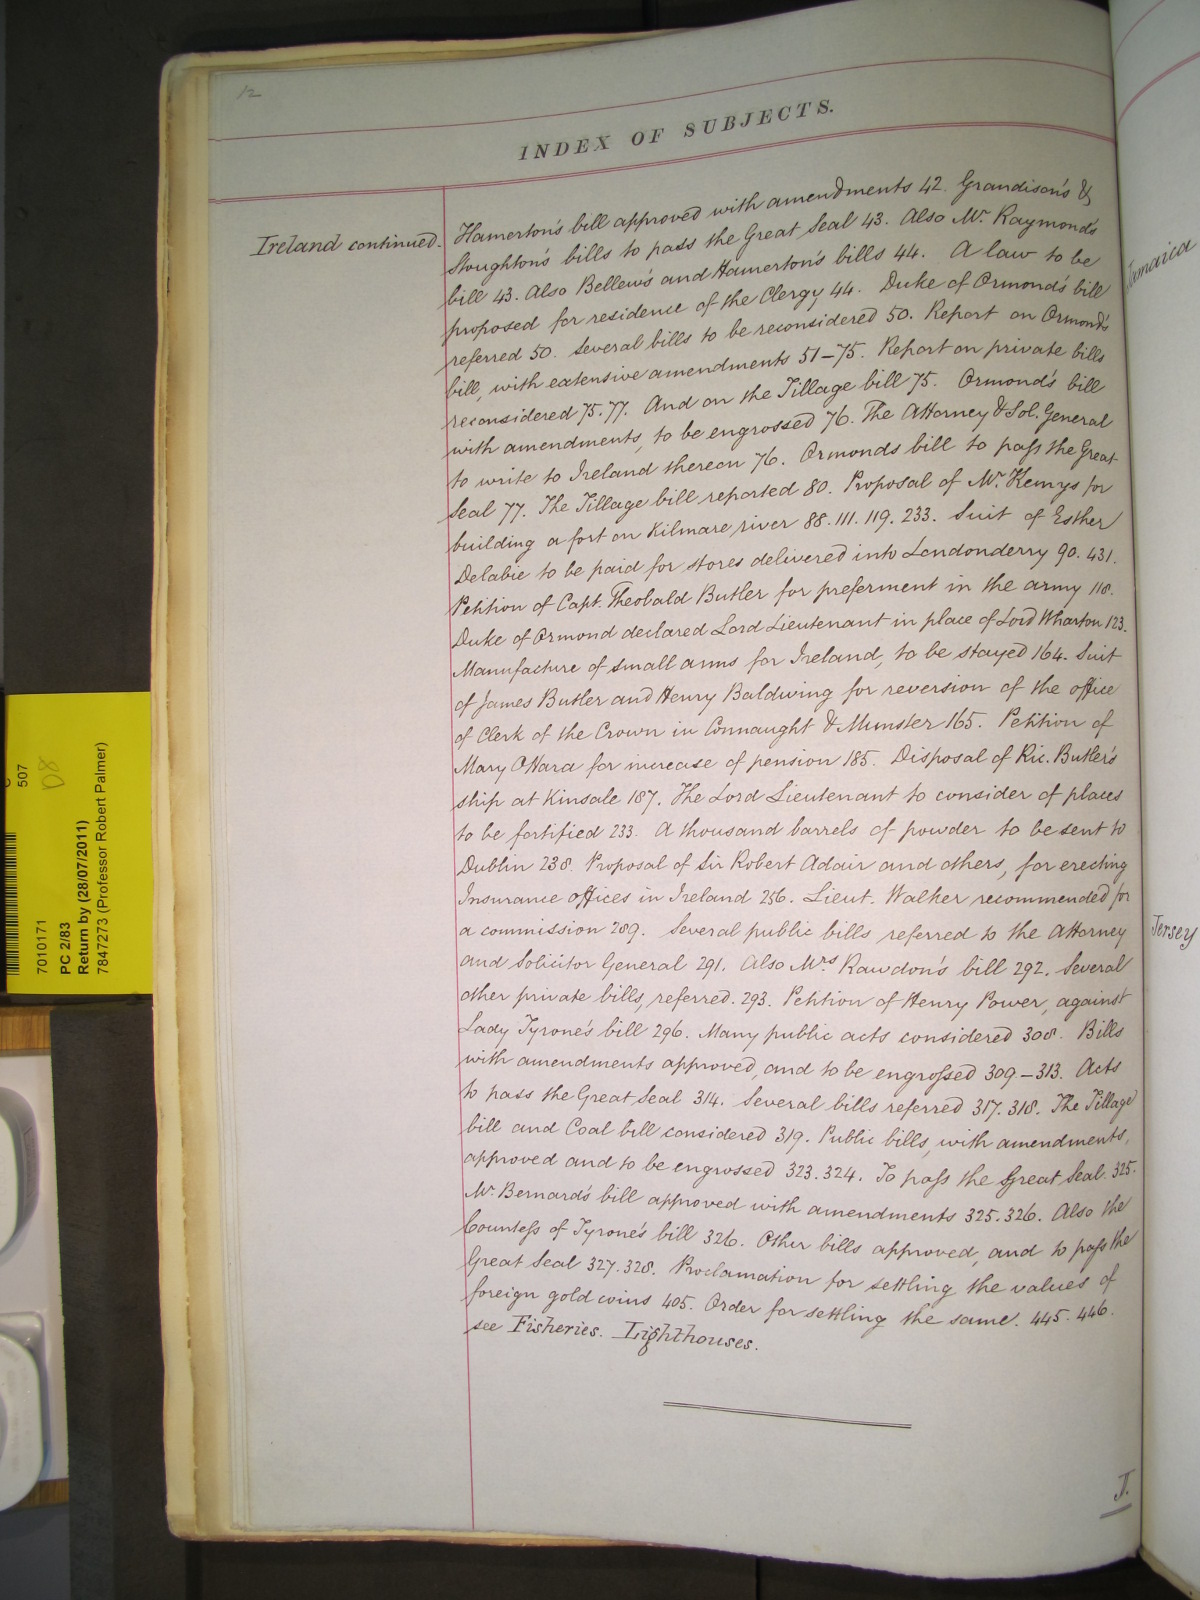 12
INDEX OF SUBJECTS.
Ireland continued.
Hamerton's bill approved with amendments 42. Grandison's &
Stoughton's bills to pass the Great Seal 43. Also Mr. Raymond's
bill 43. Also Bellew's and Hamerton's bills 44. A law to be
proposed for residence of the Clergy 44. Duke of Ormond's bill
referred 50. Several bills to be reconsidered 50. Report on Ormond's
bill, with extensive amendments 51–75. Report on private bills
reconsidered 75. 77. And on the Tillage bill 75. Ormond's bill
with amendments, to be engrossed 76. The Attorney & Sol. General
to write to Ireland thereon 76. Ormonds bill to pass the Great
Seal 77. The Tillage bill reported 80. Proposal of Mr. Kemys for
building a fort on Kilmare river 88. 111. 119. 233. Suit of Esther
Delabie to be paid for stores delivered into Londonderry 90. 431.
Petition of Capt. Theobald Butler for preferment in the army 118.
Duke of Ormond declared Lord Lieutenant in place of Lord Wharton 123.
Manufacture of small arms for Ireland, to be stayed 164. Suit
of James Butler and Henry Baldwing for reversion of the office
of Clerk of the Crown in Connaught & Munster 165. Petition of
Mary O'Hara for increase of pension 185. Disposal of Ric. Butler's
ship at Kinsale 187. The Lord Lieutenant to consider of places
to be fortified 233. A thousand barrels of powder to be sent to
Dublin 238. Proposal of Sir Robert Adair and others, for erecting
Insurance offices in Ireland 256. Lieut. Walker recommended for
a commission 289. Several public bills referred to the Attorney
and Solicitor General 291. Also Mrs Rawdon's bill 292. Several
other private bills, referred. 293. Petition of Henry Power, against
Lady Tyrone's bill 296. Many public acts considered 308. Bills
with amendments approved, and to be engrossed 309–313. Acts
to pass the Great Seal 314. Several bills referred 317. 318. The Tillage
bill and Coal bill considered 319. Public bills, with amendments,
approved and to be engrossed 323. 324. To pass the Great Seal. 325.
Mr. Bernard's bill approved with amendments 325. 326. Also the
Countess of Tyrone's bill 326. Other bills approved, and to pass the
Great Seal 327. 328. Proclamation for settling the values of
foreign gold coins 405. Order for settling the same. 445. 446.
see Fisheries. Lighthouses.
J.
Jamaica
Jersey
507
D8
7010171
PC 2/83
Return by (28/07/2011)
7847273 (Professor Robert Palmer)